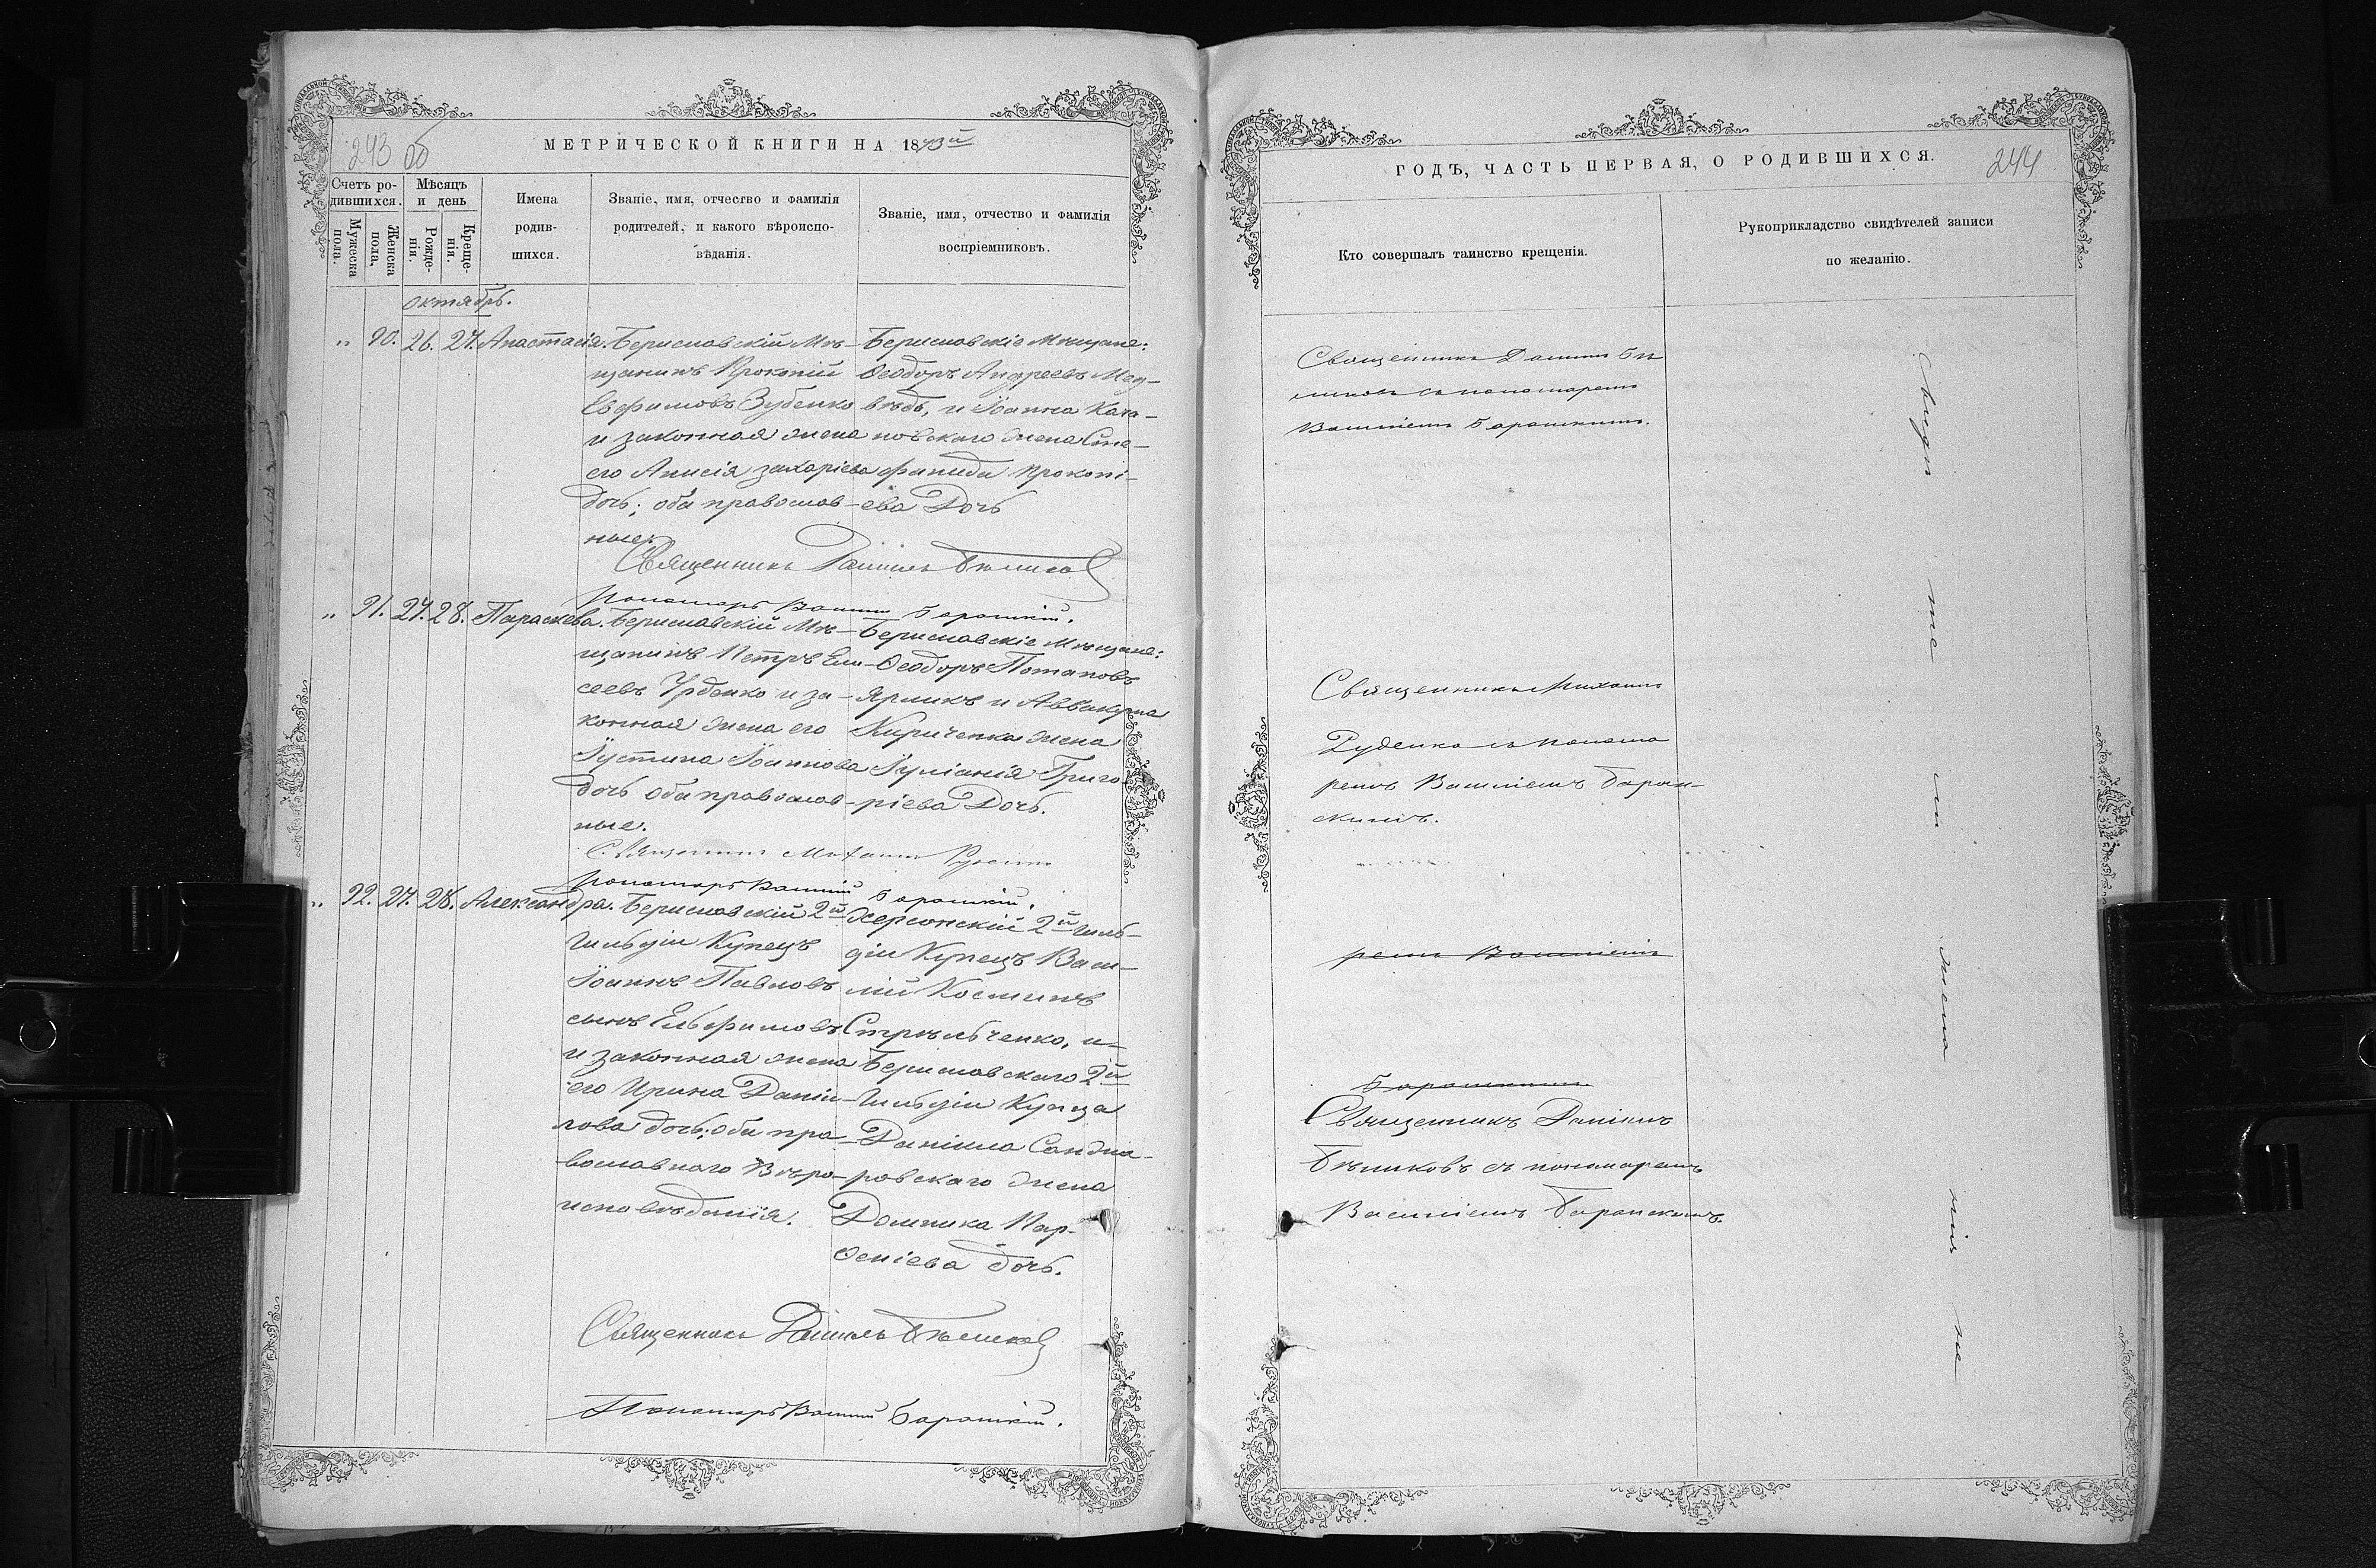 243 об
МЕТРИЧЕСКОЙ КНИГИ НА 1873й
Счетъ ро-
дившихся.
Мужеска пола.
Женска пола.
Мѣсяцъ
и день
Рожде-
нія.
Креще-
нія.
Имена
родив-
шихся.
Званіе, имя, отчество и фамилія
родителей, и какого вѣроиспо-
вѣданія.
Званіе, имя, отчество и фамилія
воспріемниковъ.
октябрь.
" 90. 26. 27. Анастасія.
Бериславскій Мѣ-
щанинъ Прокопій
Евфимовъ Зубенко
и законная жена
его Анисія Захаріева
дочь; оба православ-
ные.
Бериславскіе Мѣщане:
Ѳеодоръ Андреевъ Мед-
вѣдь, и Іоанна Каха-
новскаго жена Сте-
фанида Прокопі-
ева Дочь
Священникъ Даніилъ Бѣликов
Пономарь Василій Баранскій.
" 91. 27. 28. Параскева.
Бериславскій Мѣ-
щанинъ Петръ Ели-
сеевъ и за-
конная жена его
Іустина Іоаннова
дочь оба православ-
ные.
Бериславскіе Мѣщане:
Ѳеодоръ Потаповъ
Ярликъ и Аввакума
Кириченка жена
Іуліанія Григо-
ріева Дочь.
Священникъ Михаилъ Руденко
Пономарь Василій Баранскій.
" 92. 27. 28. Александра.
Бериславскій 2й
Гильдіи Купецъ
Іоаннъ Павловъ
сынъ Евфимовъ
и законная жена
его Ирина Даніи-
лова дочь; оба пра-
вославнаго Вѣро-
исповѣданія.
Херсонскій 2й Гиль-
діи Купецъ Васи-
лій Косминъ
Стрѣльченко, и-
Бериславскаго 2й
Гильдіи Купца
Даніила
ровскаго жена
Домника Пар-
ѳеніева дочь.
Священникъ Даніилъ Бѣликов
Пономарь Василій Баранскій.
ГОДЪ, ЧАСТЬ ПЕРВАЯ, О РОДИВШИХСЯ.
244
Кто совершалъ таинство крещенія.
Рукоприкладство свидѣтелей записи
по желанію.
Священникъ Даніилъ Бѣ
ликовъ съ пономаремъ
Василіемъ Баранскимъ.
Священникъ Михаилъ
Руденко съ понома
ремъ Василіемъ Баран-
скимъ.
ремъ Василіемъ
Баранскимъ
Священникъ Даніилъ
Бѣликовъ съ пономаремъ
Василіемъ Баранскимъ.